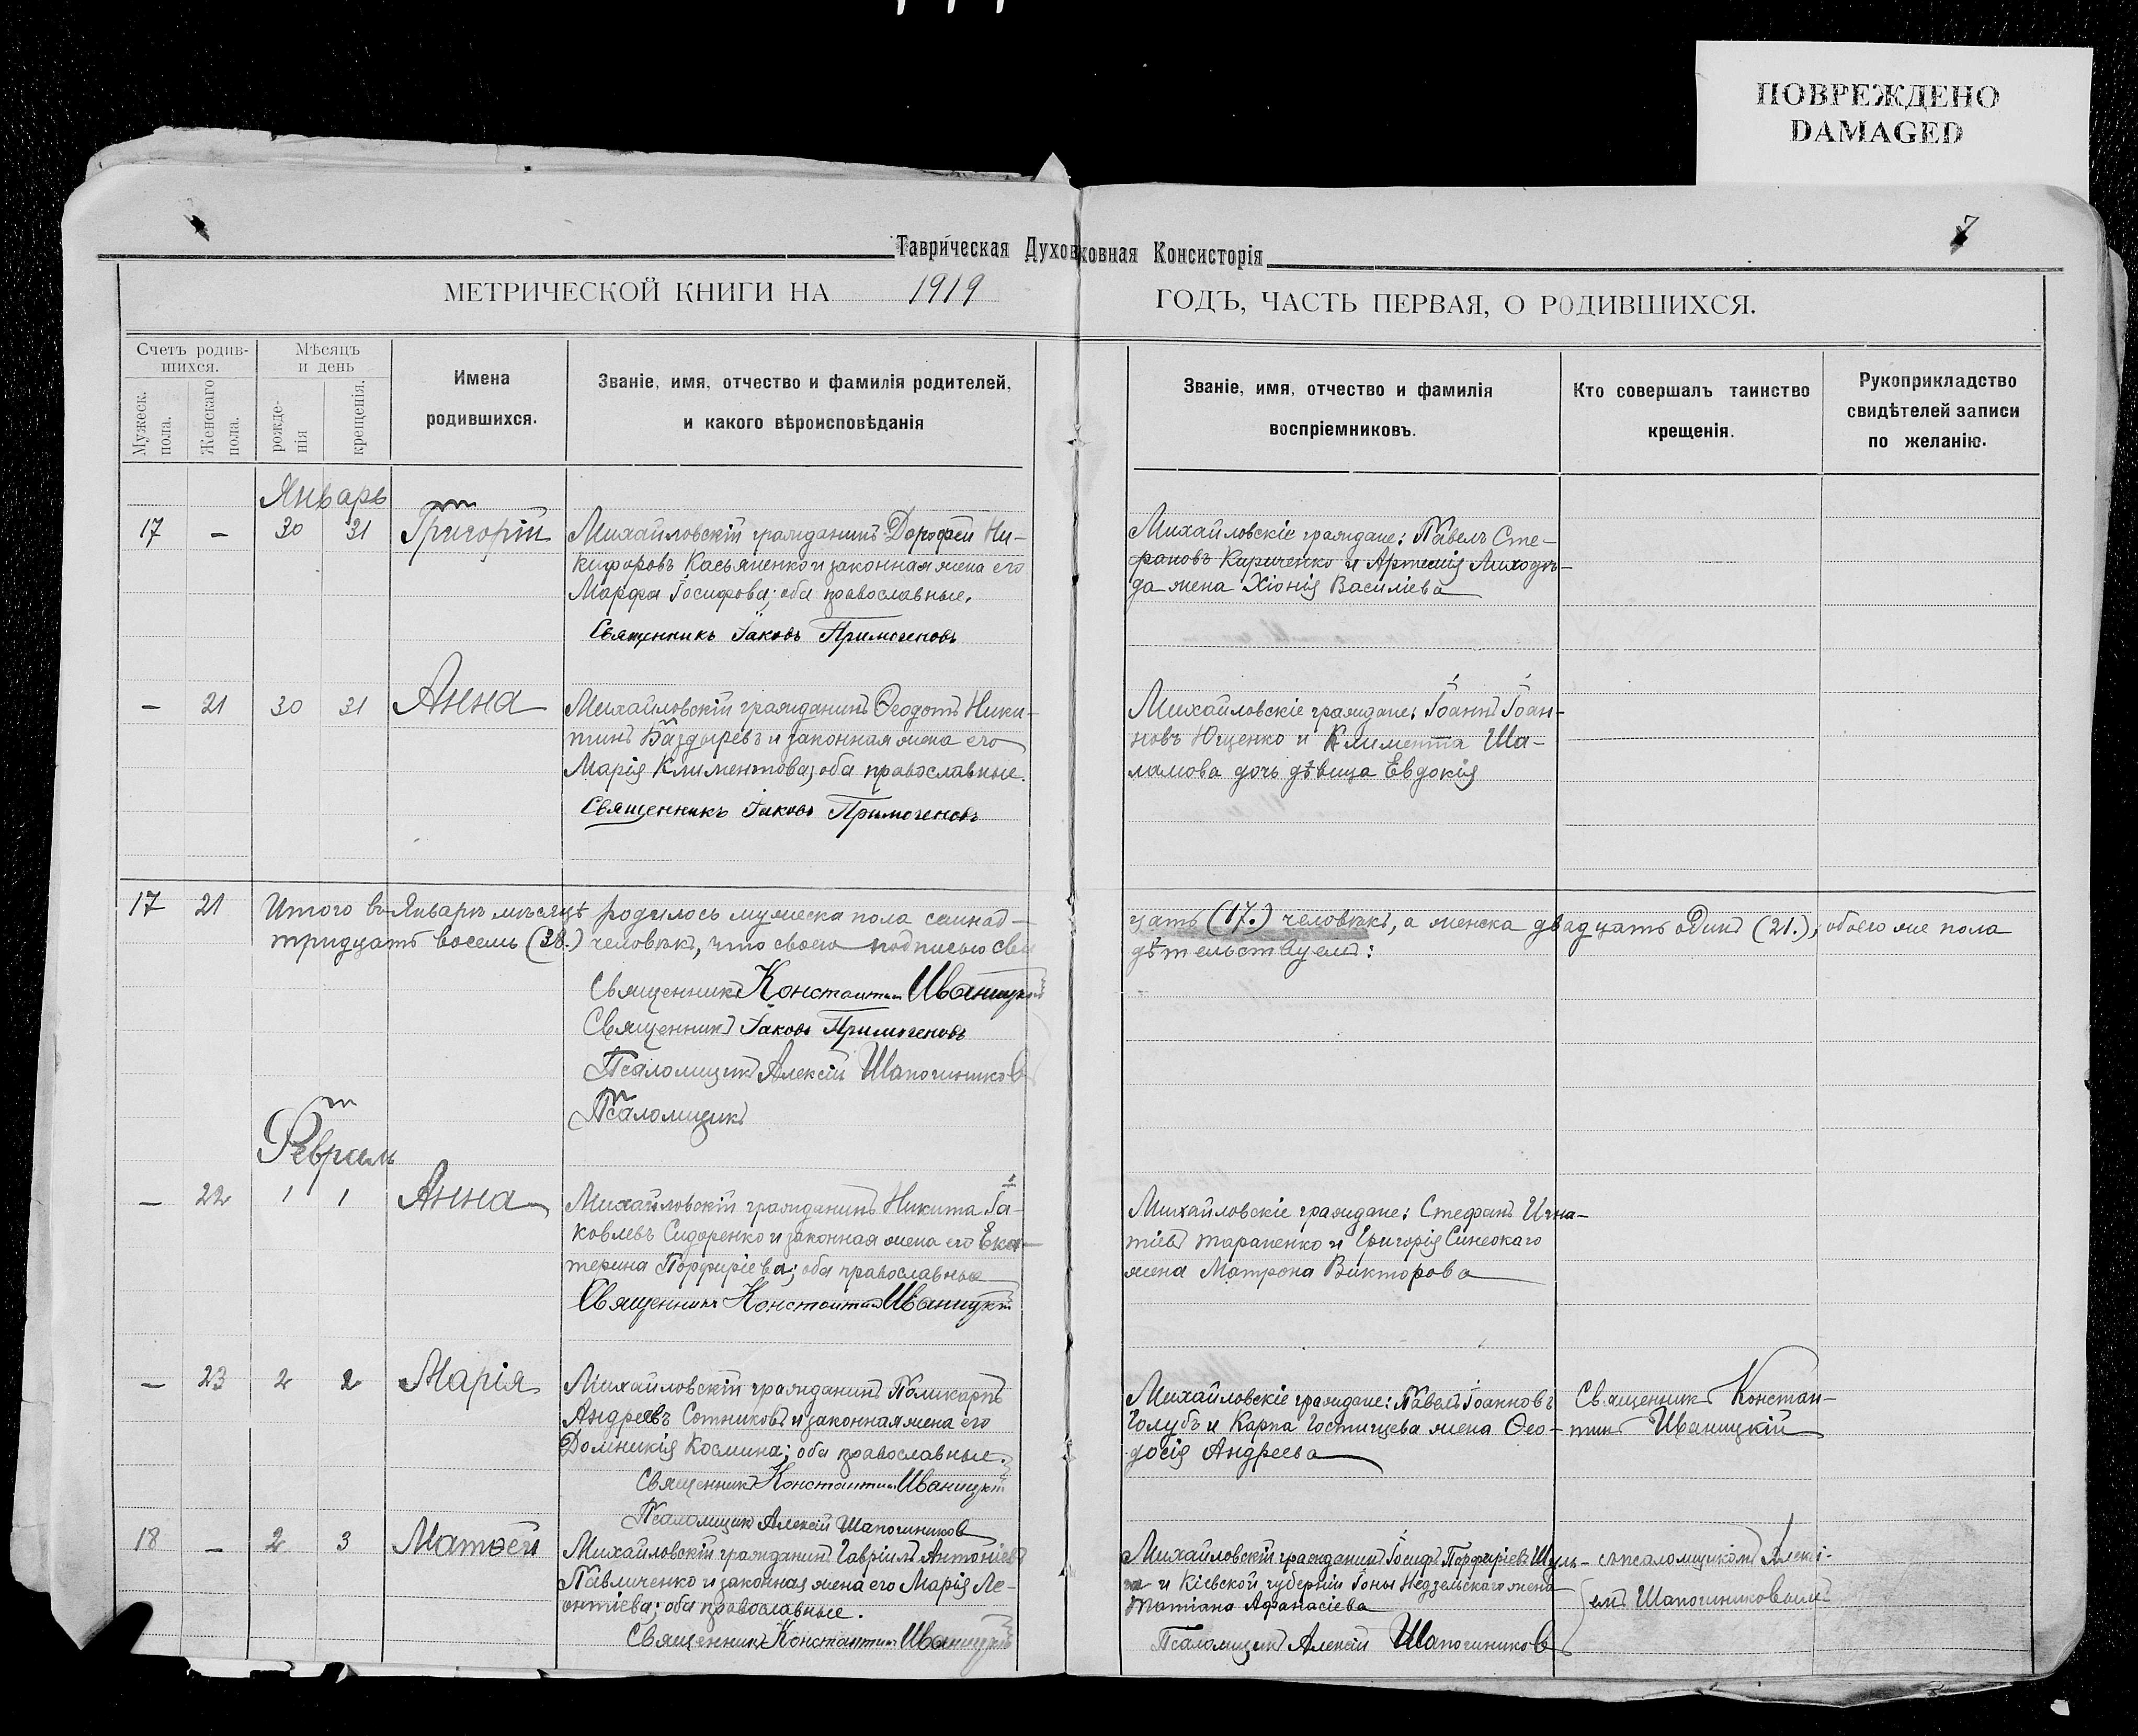 ПОВРЕЖДЕНО
DAMAGED
7
Таврическая Духовная Консисторія
МЕТРИЧЕСКОЙ КНИГИ НА 1919 ГОДЪ, ЧАСТЬ ПЕРВАЯ, О РОДИВШИХСЯ.
Счетъ родив-
шихся.
Мужеск.
пола.
Женскаго
пола.
Мѣсяцъ
и день
рожде-
нія
крещенія.
Имена
родившихся.
Званіе, имя, отчество и фамилія родителей,
и какого вѣроисповѣданія
Званіе, имя, отчество и фамилія
воспріемниковъ.
Кто совершалъ таинство
крещенія.
Рукоприкладство
свидѣтелей записи
по желанію.
Январь
17 — 30 31 Григорій
Михайловскій гражданинъ Дорофей Ни-
кифоровъ Касьяненко и законная жена его
Марфа Іосифова; оба православные.
Священникъ Іаковъ Примогеновъ
Михайловскіе граждане: Павелъ Сте-
фановъ Кириченко и Артемія Лиходѣ-
да жена Хіонія Василіева
— 21 30 31 Анна
Михайловскій гражданинъ Ѳеодотъ Ники-
тинъ Баздыревъ и законная жена его
Марія Климентова; оба православные.
Священникъ Іаковъ Примогеновъ
Михайловскіе граждане: Іоаннъ Іоан-
новъ Ющенко и Климента Ша-
ламова дочь дѣвица Евдокія
17 21 Итого въ Январѣ мѣсяцѣ родилось мужеска пола семнад-
цать (17.) человѣкъ, а женска двадцать одинъ (21.), обоего же пола
тридцать восемь (38.) человѣкъ, что своею подписью сви
дѣтельствуемъ:
Священникъ Константин Иваницкій
Священникъ Іаковъ Примогеновъ
Псаломщикъ Алексій Шапошников
Псаломщикъ
Февраль
— 22 1 1 Анна
Михайловскій гражданинъ Никита Іа-
ковлевъ Сидоренко и законная жена его Ека-
терина Порфиріева; оба православные
Священникъ Константин Иваницкій
Михайловскіе граждане: Стефанъ Игна-
тіевъ Тараненко и Григорія Синеокаго
жена Матрона Викторова
— 23 2 2 Марія
Михайловскій гражданинъ Поликарпъ
Андреевъ Сотниковъ и законная жена его
Домникія Космина; оба православные.
Священникъ Константин Иваницкій
Псаломщик Алексій Шапошников
Михайловскіе граждане: Павелъ Іоанновъ
Голубъ и Карпа Гостищева жена Ѳео-
досія Андреева
Священникъ Констан-
тинъ Иваницкій
18 — 2 3 Матѳей
Михайловскій гражданинъ Гавріилъ Антоніевъ
Павличенко и законная жена его Марія Ле-
онтіева; оба православные.
Священникъ Константин Иваницкій
Михайловскій гражданинъ Іосифъ Порфиріевъ Шуль-
га и Кіевской губерніи Іоны Недзельскаго жена
Татіана Афанасіева
Псаломщикъ Алексій Шапошников
съ псаломщикомъ Алексі-
емъ Шапошниковымъ